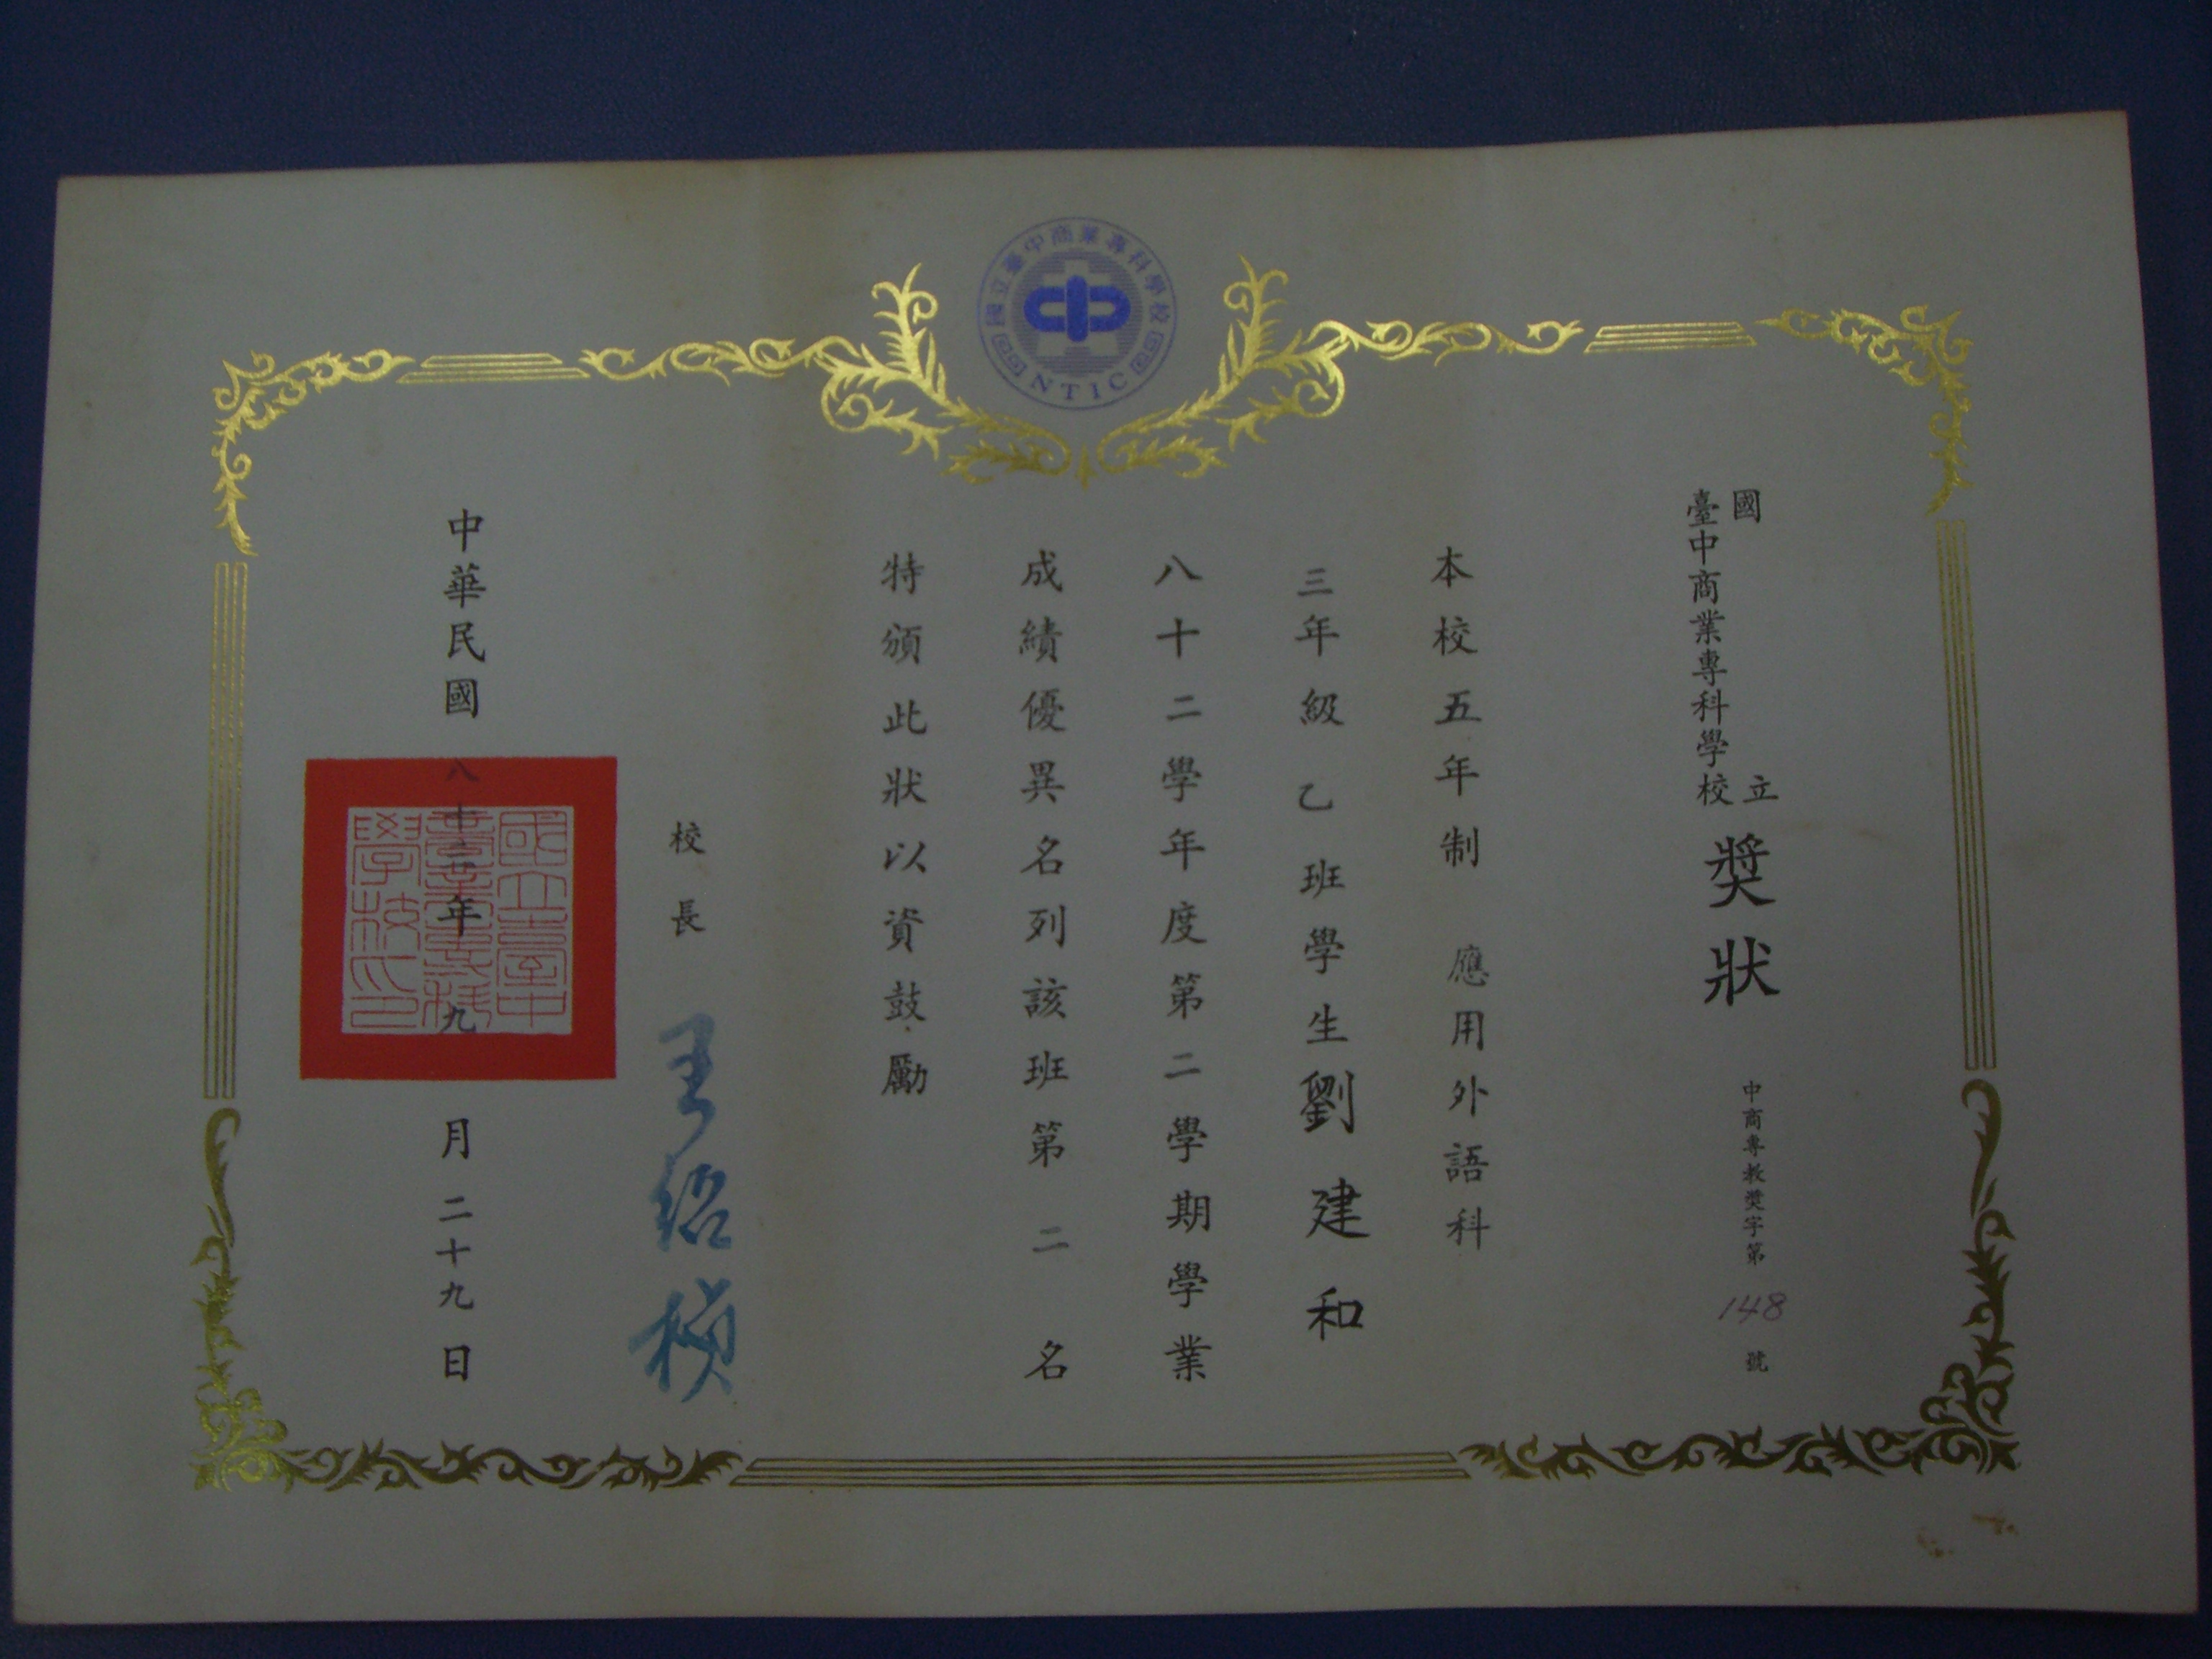 國立臺中商業專科學校
NTIC
國立
臺中商業專科學校
獎狀
中商專教獎字第148號
本校五年制 應用外語科
三年級乙班學生劉建和
八十二學年度第二學期學業
成績優異名列該班第二名
特頒此狀以資鼓勵
校長 王紹楨
中華民國八十三年九月二十九日